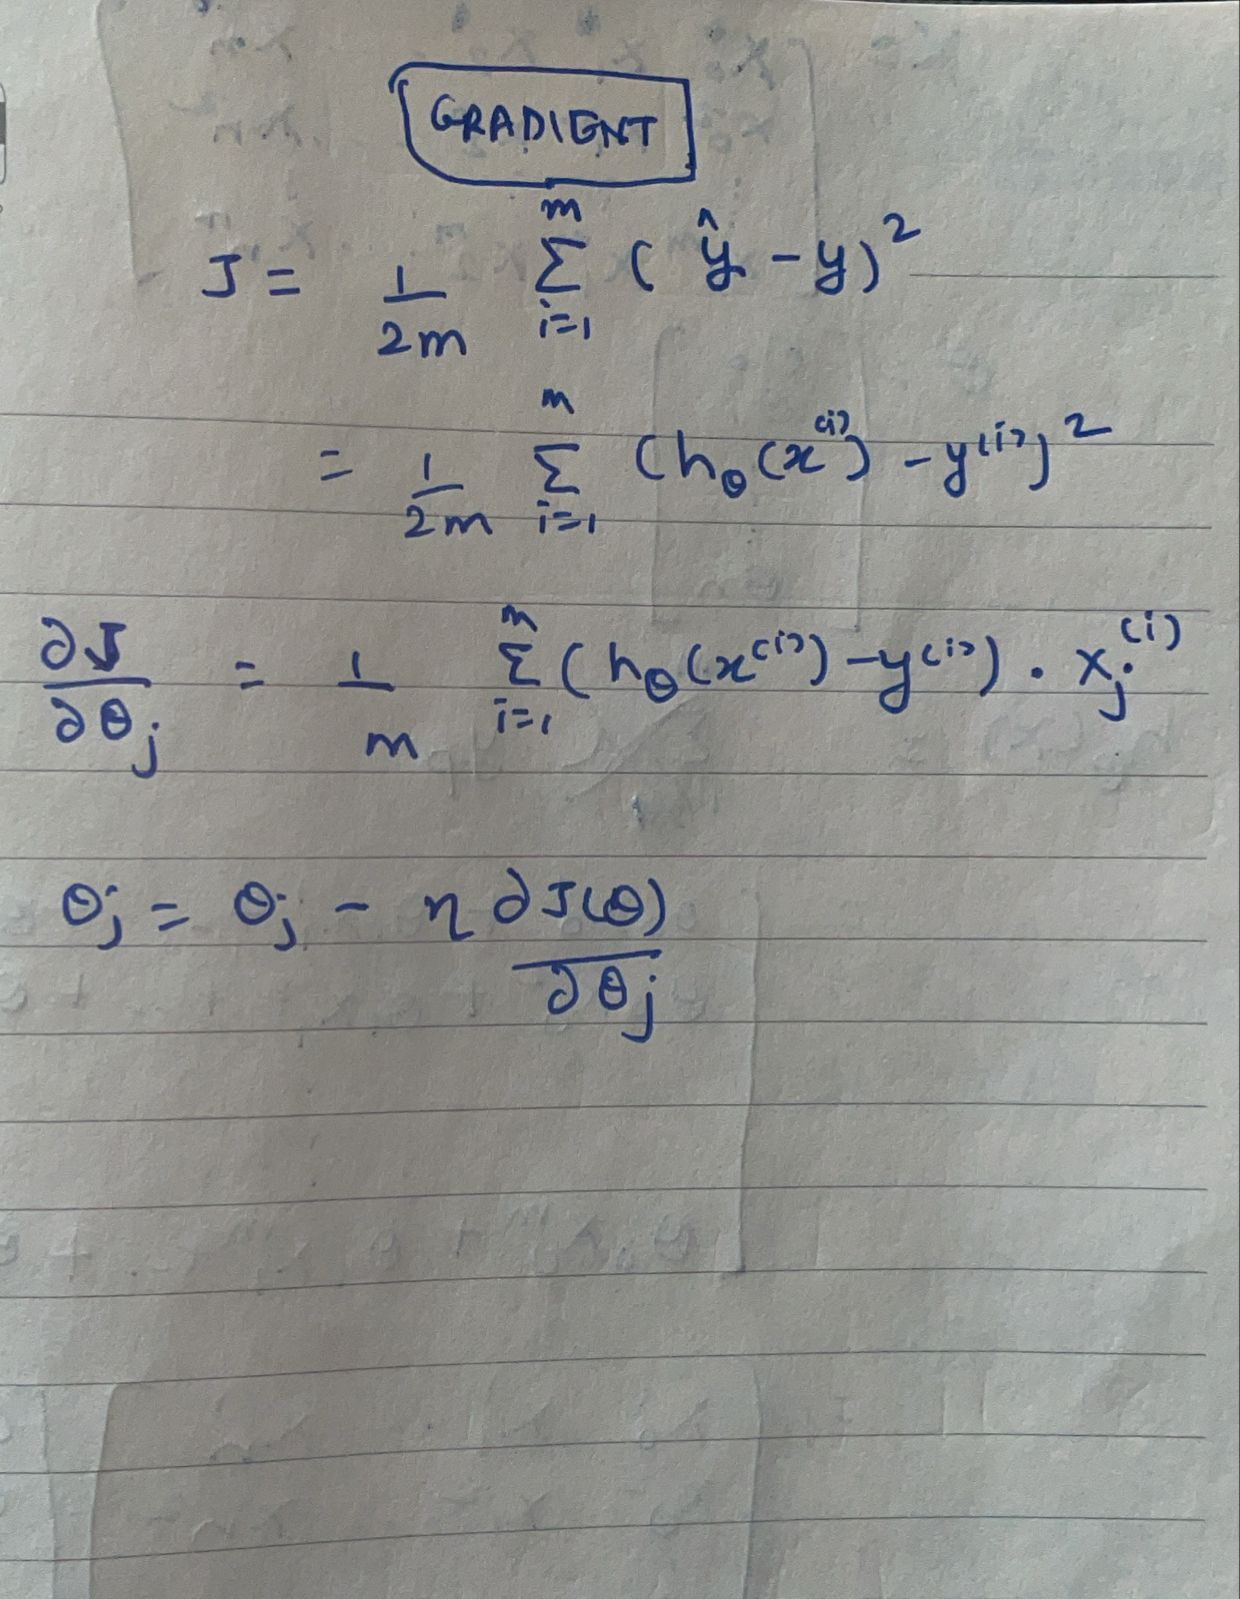 GRADIENT
J = 1/2m Σ_{i=1}^{m} (ŷ - y)²
= 1/2m Σ_{i=1}^{m} (h_θ(x^{(i)}) - y^{(i)})²
∂J/∂θ_j = 1/m Σ_{i=1}^{m} (h_θ(x^{(i)}) - y^{(i)}) . x_j^{(i)}
θ_j = θ_j - η ∂J(θ)/∂θ_j